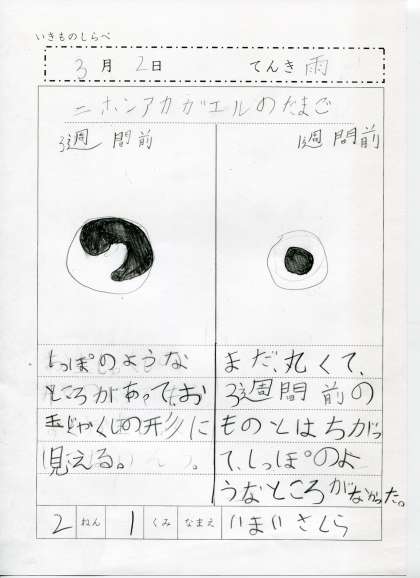 いきものしらべ
3月2日 てんき 雨
ニホンアカガエルのたまご
3週間前
1週間前
しっぽのような
ところがあって、お
玉じゃくしの形に
見える。
まだ、丸くて、
3週間前の
ものとはちがっ
て、しっぽのよ
うなところがなかった。
2 ねん 1 くみ なまえ いまい さくら